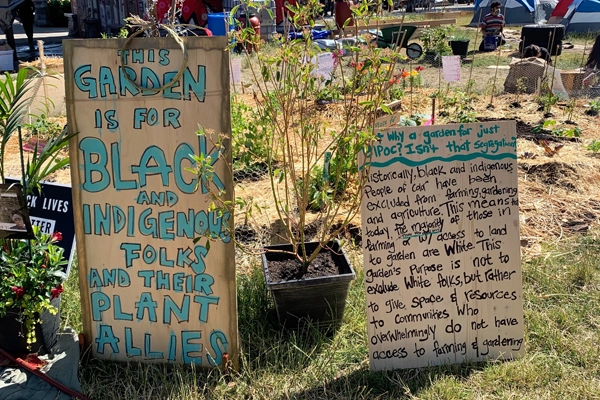 THIS
GARDEN
IS FOR
BLACK
AND
INDIGENOUS
FOLKS
AND THEIR
PLANT
ALLIES
LIVES
Why a garden for just
Isn't that
Historically, black and indigenous
People of color have been
excluded from farming, gardening
and agriculture. This means
the majority of those in
farming access to land
to garden are White. This
garden's Purpose is not to
exclude White folks, but rather
to give space & resources
to communities who
overwhelmingly do not have
access to farming & gardening